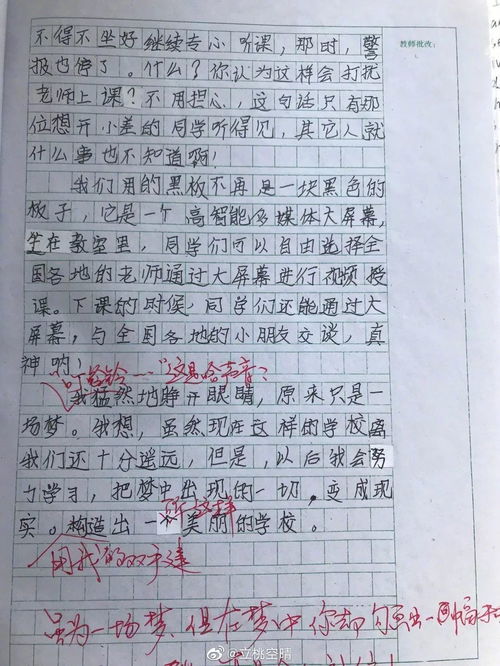 教师批改：
不得不坐好继续专心听课，那时，警
报也停了。什么？你认为这样会打扰
老师上课？不用担心，这句话只有那
位想开小差的同学听得见，其它人就
什么事也不知道啊！
我们用的黑板不再是一块黑色的
板子，它是一个高智能多媒体大屏幕，
坐在教室里，同学们可以自由选择全
国各地的老师通过大屏幕进行视频授
课。下课的时候，同学们还能通过大
屏幕，与全国各地的小朋友交谈，真
神哟！
"这是啥声音？
我猛然地睁开眼睛，原来只是一
场梦。我想，虽然现在这样的学校离
我们还十分遥远，但是，以后我会努
力学习，把梦中出现的一切，变成现
实。构造出一所美丽的学校。
用我的双手建
虽为一场梦，但在梦中你却勾画出一幅
@立桃空晴